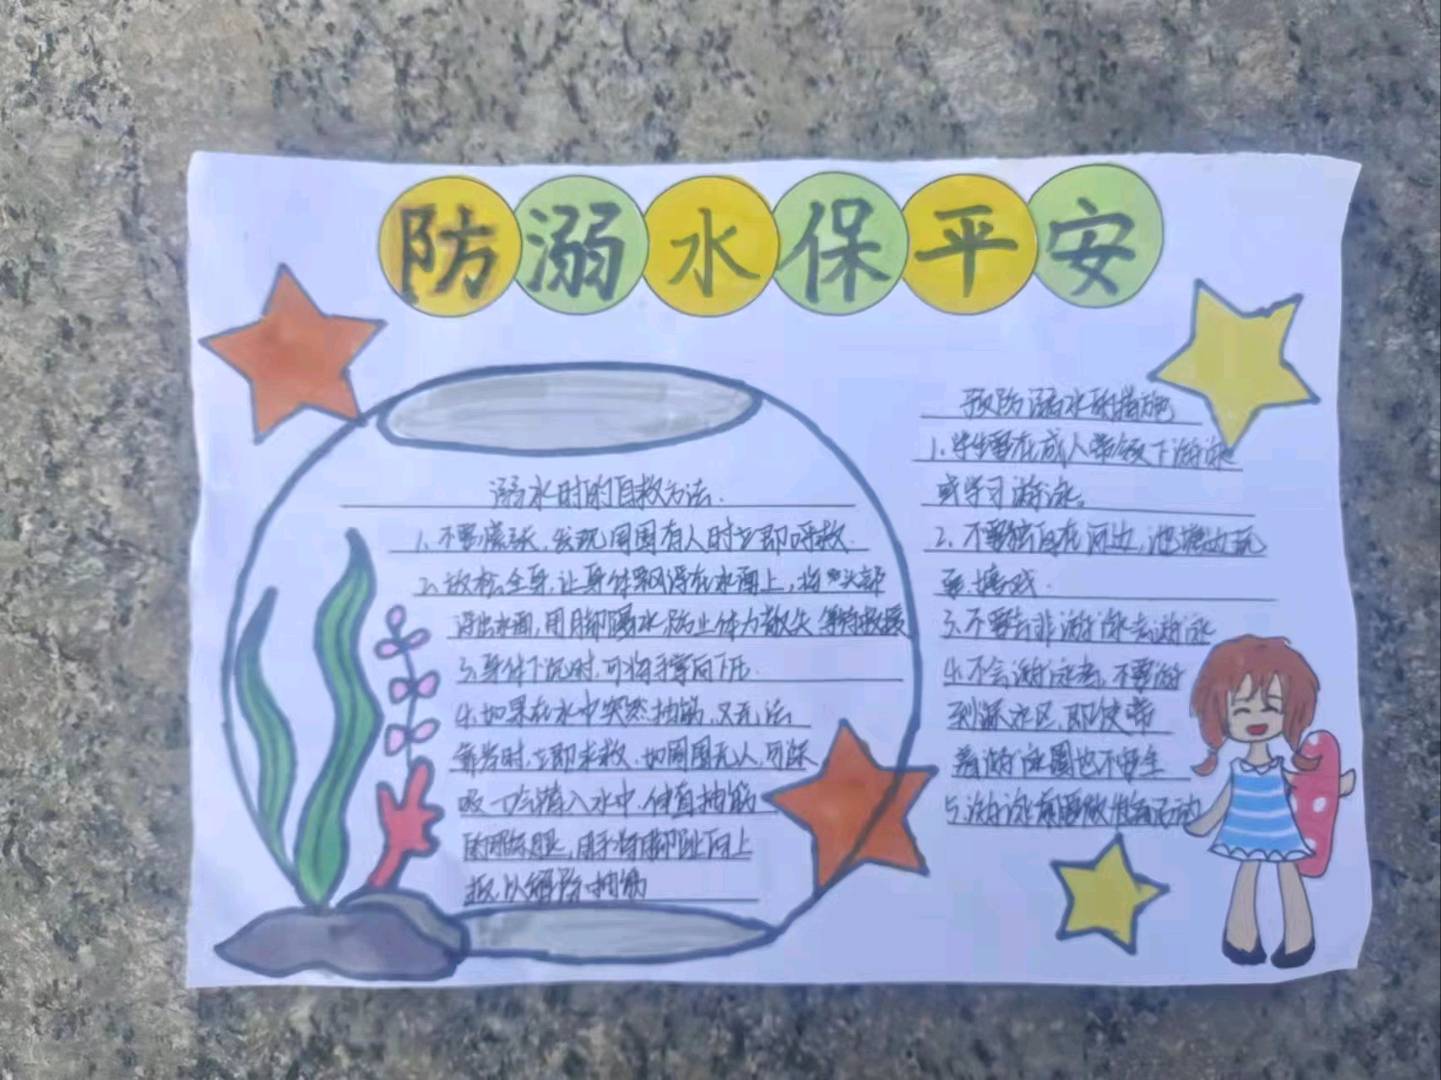 防溺水保平安
溺水时的自救方法.
1.不要慌张,发现周围有人时立即呼救
2.放松全身,让身体飘浮在水面上,将头部
浮出水面,用脚踢水防止体力散失等待救援
3.身体下沉时,可将手掌向下压.
4.如果在水中突然抽筋,又无法
靠岸时,立即求救.如周围无人,可深
吸一口气潜入水中.伸直抽筋
的那条腿,用手将脚趾向上
扳,以解除抽筋
预防溺水的措施
1.学生要在成人带领下游泳
或学习游泳。
2.不要独自在河边,池塘边玩
耍.嬉戏.
3.不要去非游泳去游泳
4.不会游泳者,不要游
到深水区,即使带
着游泳圈也不安全
5.游泳前要做准备活动